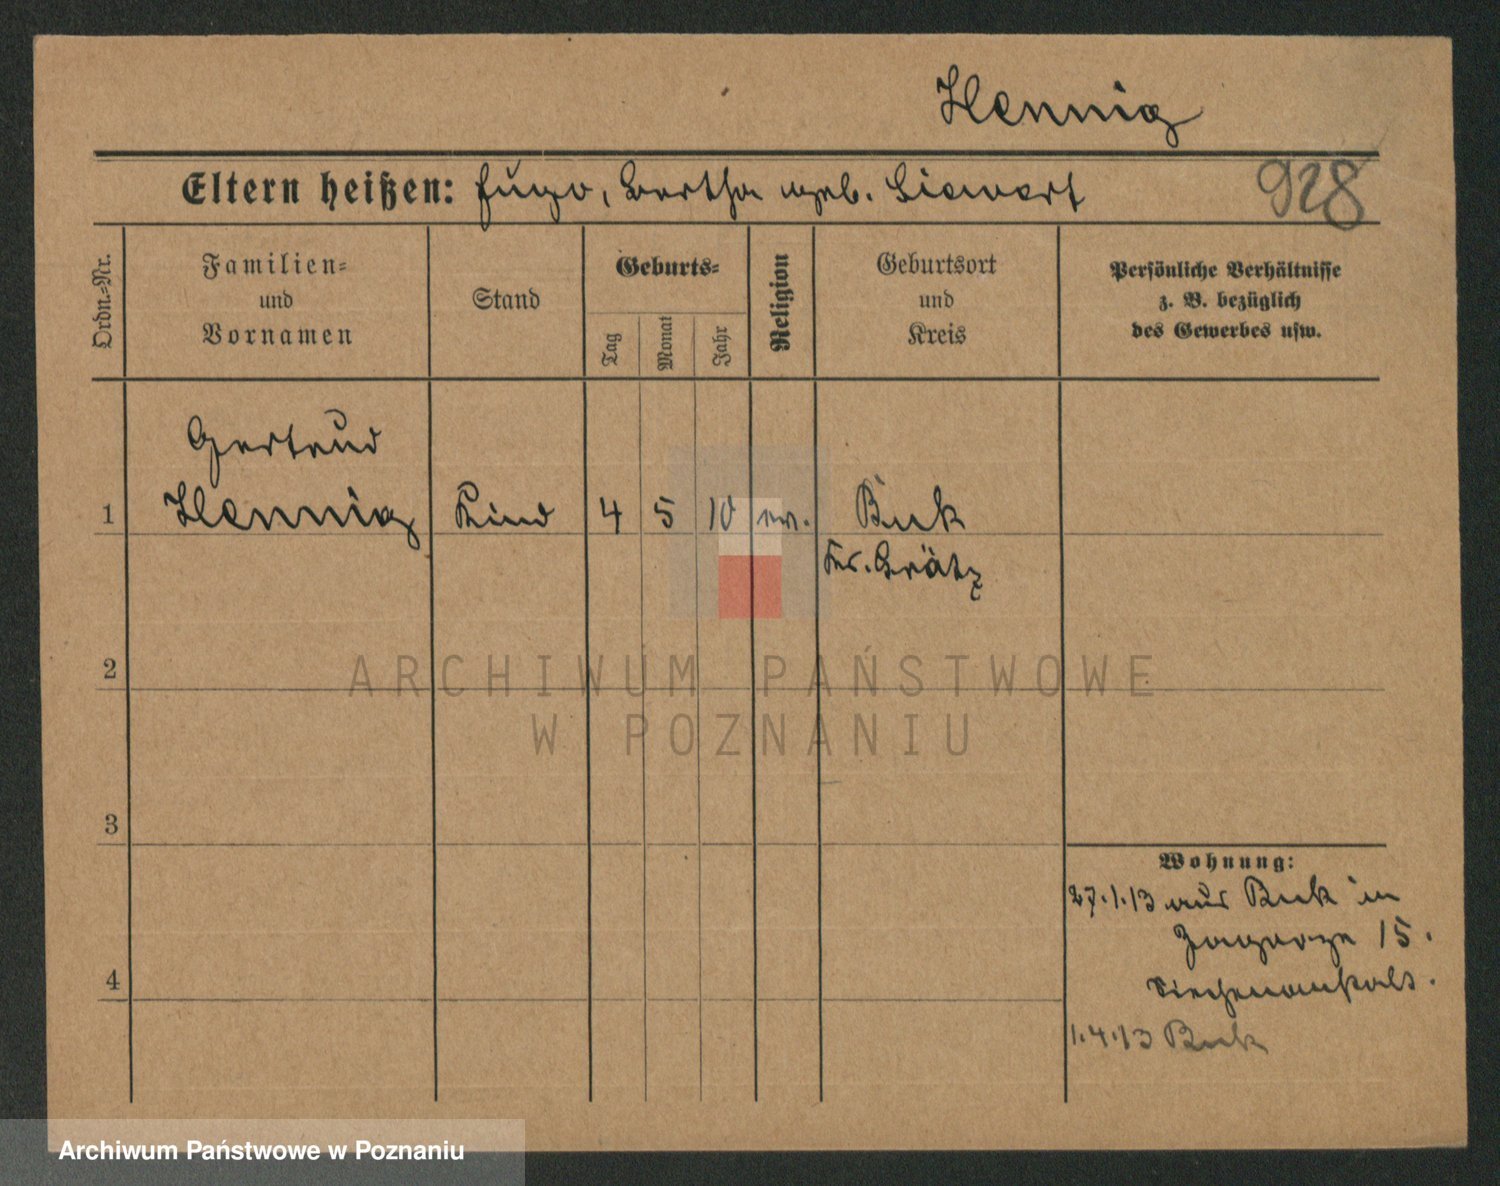 Hennig
Eltern heißen: Hugo, Bertha geb. Siewert
928
Ordn.-Nr.
Familien-
und
Vornamen
Stand
Geburts-
Tag
Monat
Jahr
Religion
Geburtsort
und
Kreis
Persönliche Verhältnisse
z. B. bezüglich
des Gewerbes usw.
Gertrud
1 Hennig Kind 4 5 10 ev. Buk
Kr. Grätz
2
ARCHIWUM PAŃSTWOWE
W POZNANIU
3
Wohnung:
27.1.13 aus Buk in
Zagorze 15.
Siechenanstalt.
4
1.4.13 Buk
Archiwum Państwowe w Poznaniu